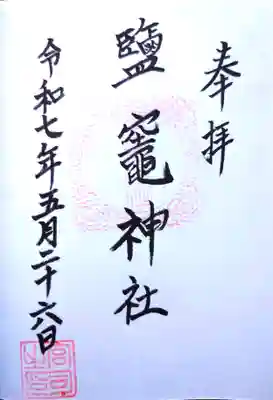 奉拝
鹽竈神社
令和七年五月二十六日